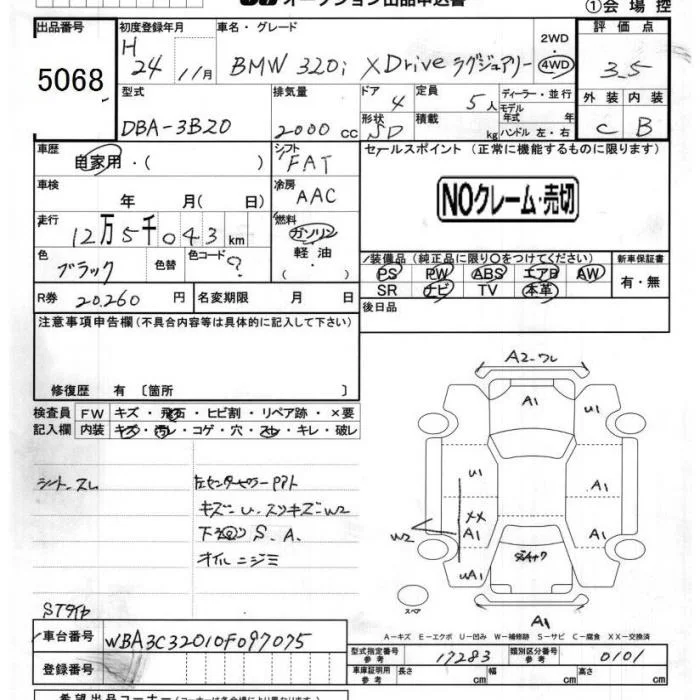 オークション出品申込書
①会場控
出品番号 初度登録年月 車名・グレード 評価点
5068 H24 11月 BMW 320i XDrive ラグジュアリー 2WD・4WD 3.5
型式 排気量 ドア 定員 ディーラー・並行 外装 内装
DBA-3B20 2000cc 4 5人 モデル年式 年 C B
形状 SD 積載 kg ハンドル 左・右
車歴 自家用・( ) シフト FAT セールスポイント (正常に機能するものに限ります)
車検 年 月( 日) 冷房 AAC NOクレーム・売切
走行 12万5千043km 燃料 ガソリン 軽油・( )
色 ブラック 色替 色コード ? 装備品(純正品に限り○をつけてください) 新車保証書
PS PW ABS エアB AW 有・無
SR ナビ TV 本革
R券 20,260円 名変期限 月 日 後日品
注意事項申告欄(不具合内容等は具体的に記入して下さい)
修復歴 有〔箇所 〕
検査員 FW キズ・飛石・ヒビ割・リペア跡・×要
記入欄 内装 キズ・汚レ・コゲ・穴・スレ・キレ・破レ
シートスレ
キズ・U.スリキズ・W2
下 S.A.
オイルニジミ
STタイヤ
A2-ワレ
A1 U1
U1 A1
W2 XX A1 A1
UA1
スペア A1
A−キズ E−エクボ U−凹み W−補修跡 S−サビ C−腐食 XX−交換済
車台番号 WBA3C32010F097075
型式指定番号 参考 17283 類別区分番号 参考 0101
登録番号 車庫証明用 参考 長さ cm 幅 cm 高さ cm
希望出品コーナー